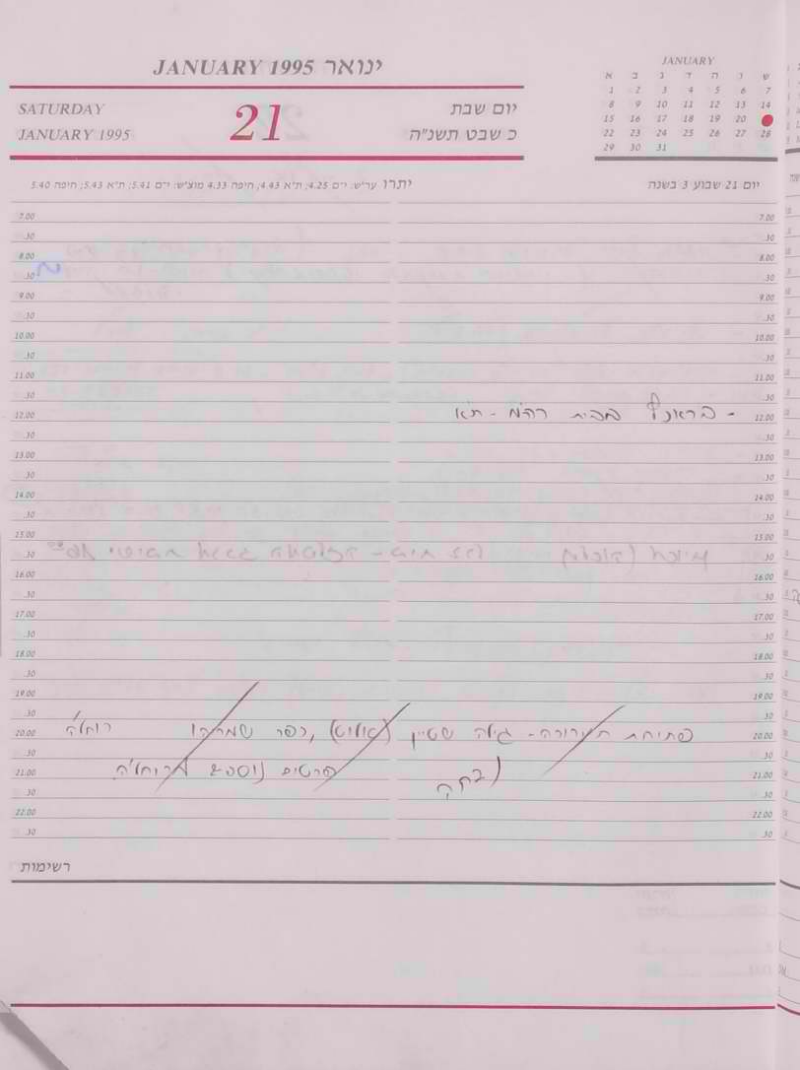 JANUARY 1995 ינואר
SATURDAY
JANUARY 1995
21
יום שבת
כ שבט תשנ"ה
JANUARY
א ב ג ד ה ו ש
1 2 3 4 5 6 7
8 9 10 11 12 13 14
15 16 17 18 19 20
22 23 24 25 26 27 28
29 30 31
יום 21 שבוע 3 בשנה
יתרו ער"ש: י-ם 4.25; ת"א 4.43; חיפה 4.33 מוצ"ש: י-ם 5.41; ת"א 5.43; חיפה 5.40
7.00
.30
8.00
.30
9.00
.30
10.00
.30
11.00
.30
12.00
- בראנץ בבית רה"מ - ת"א
.30
13.00
.30
14.00
.30
15.00
.30
16.00
.30
17.00
.30
18.00
.30
19.00
.30
20.00
פתיחת תערוכה - גילה שטיין (אוליט), כפר שמריהו רוחל'ה
.30
21.00
פרטים נוספים מרוחל'ה
.30
22.00
.30
רשימות